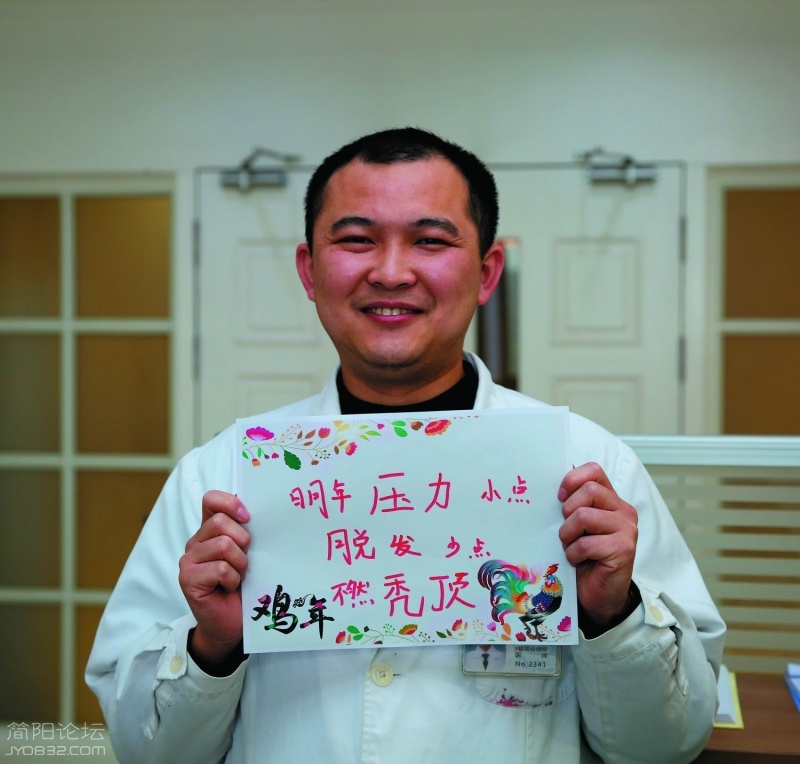 明年压力小点
脱发少点
不然秃顶
鸡年
No.2341
简阳论坛
JY0832.COM